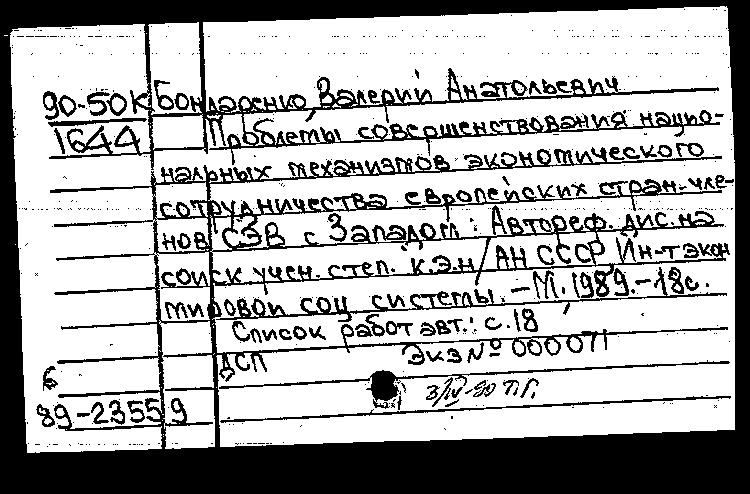 90-50К Бондаренко, Валерий Анатольевич
1644 Проблемы совершенствования нацио-
нальных механизмов экономического
сотрудничества европейских стран-чле-
нов СЭВ с Западом: Автореф. дис. на
соиск. учен. степ. к.э.н/АН СССР, Ин-т экон
мировой соц системы. –М. 1989.–18с.
Список работ авт.: с.18
ДСП Экз № 000071
б
89-23559 3/IV-90 П.Г.